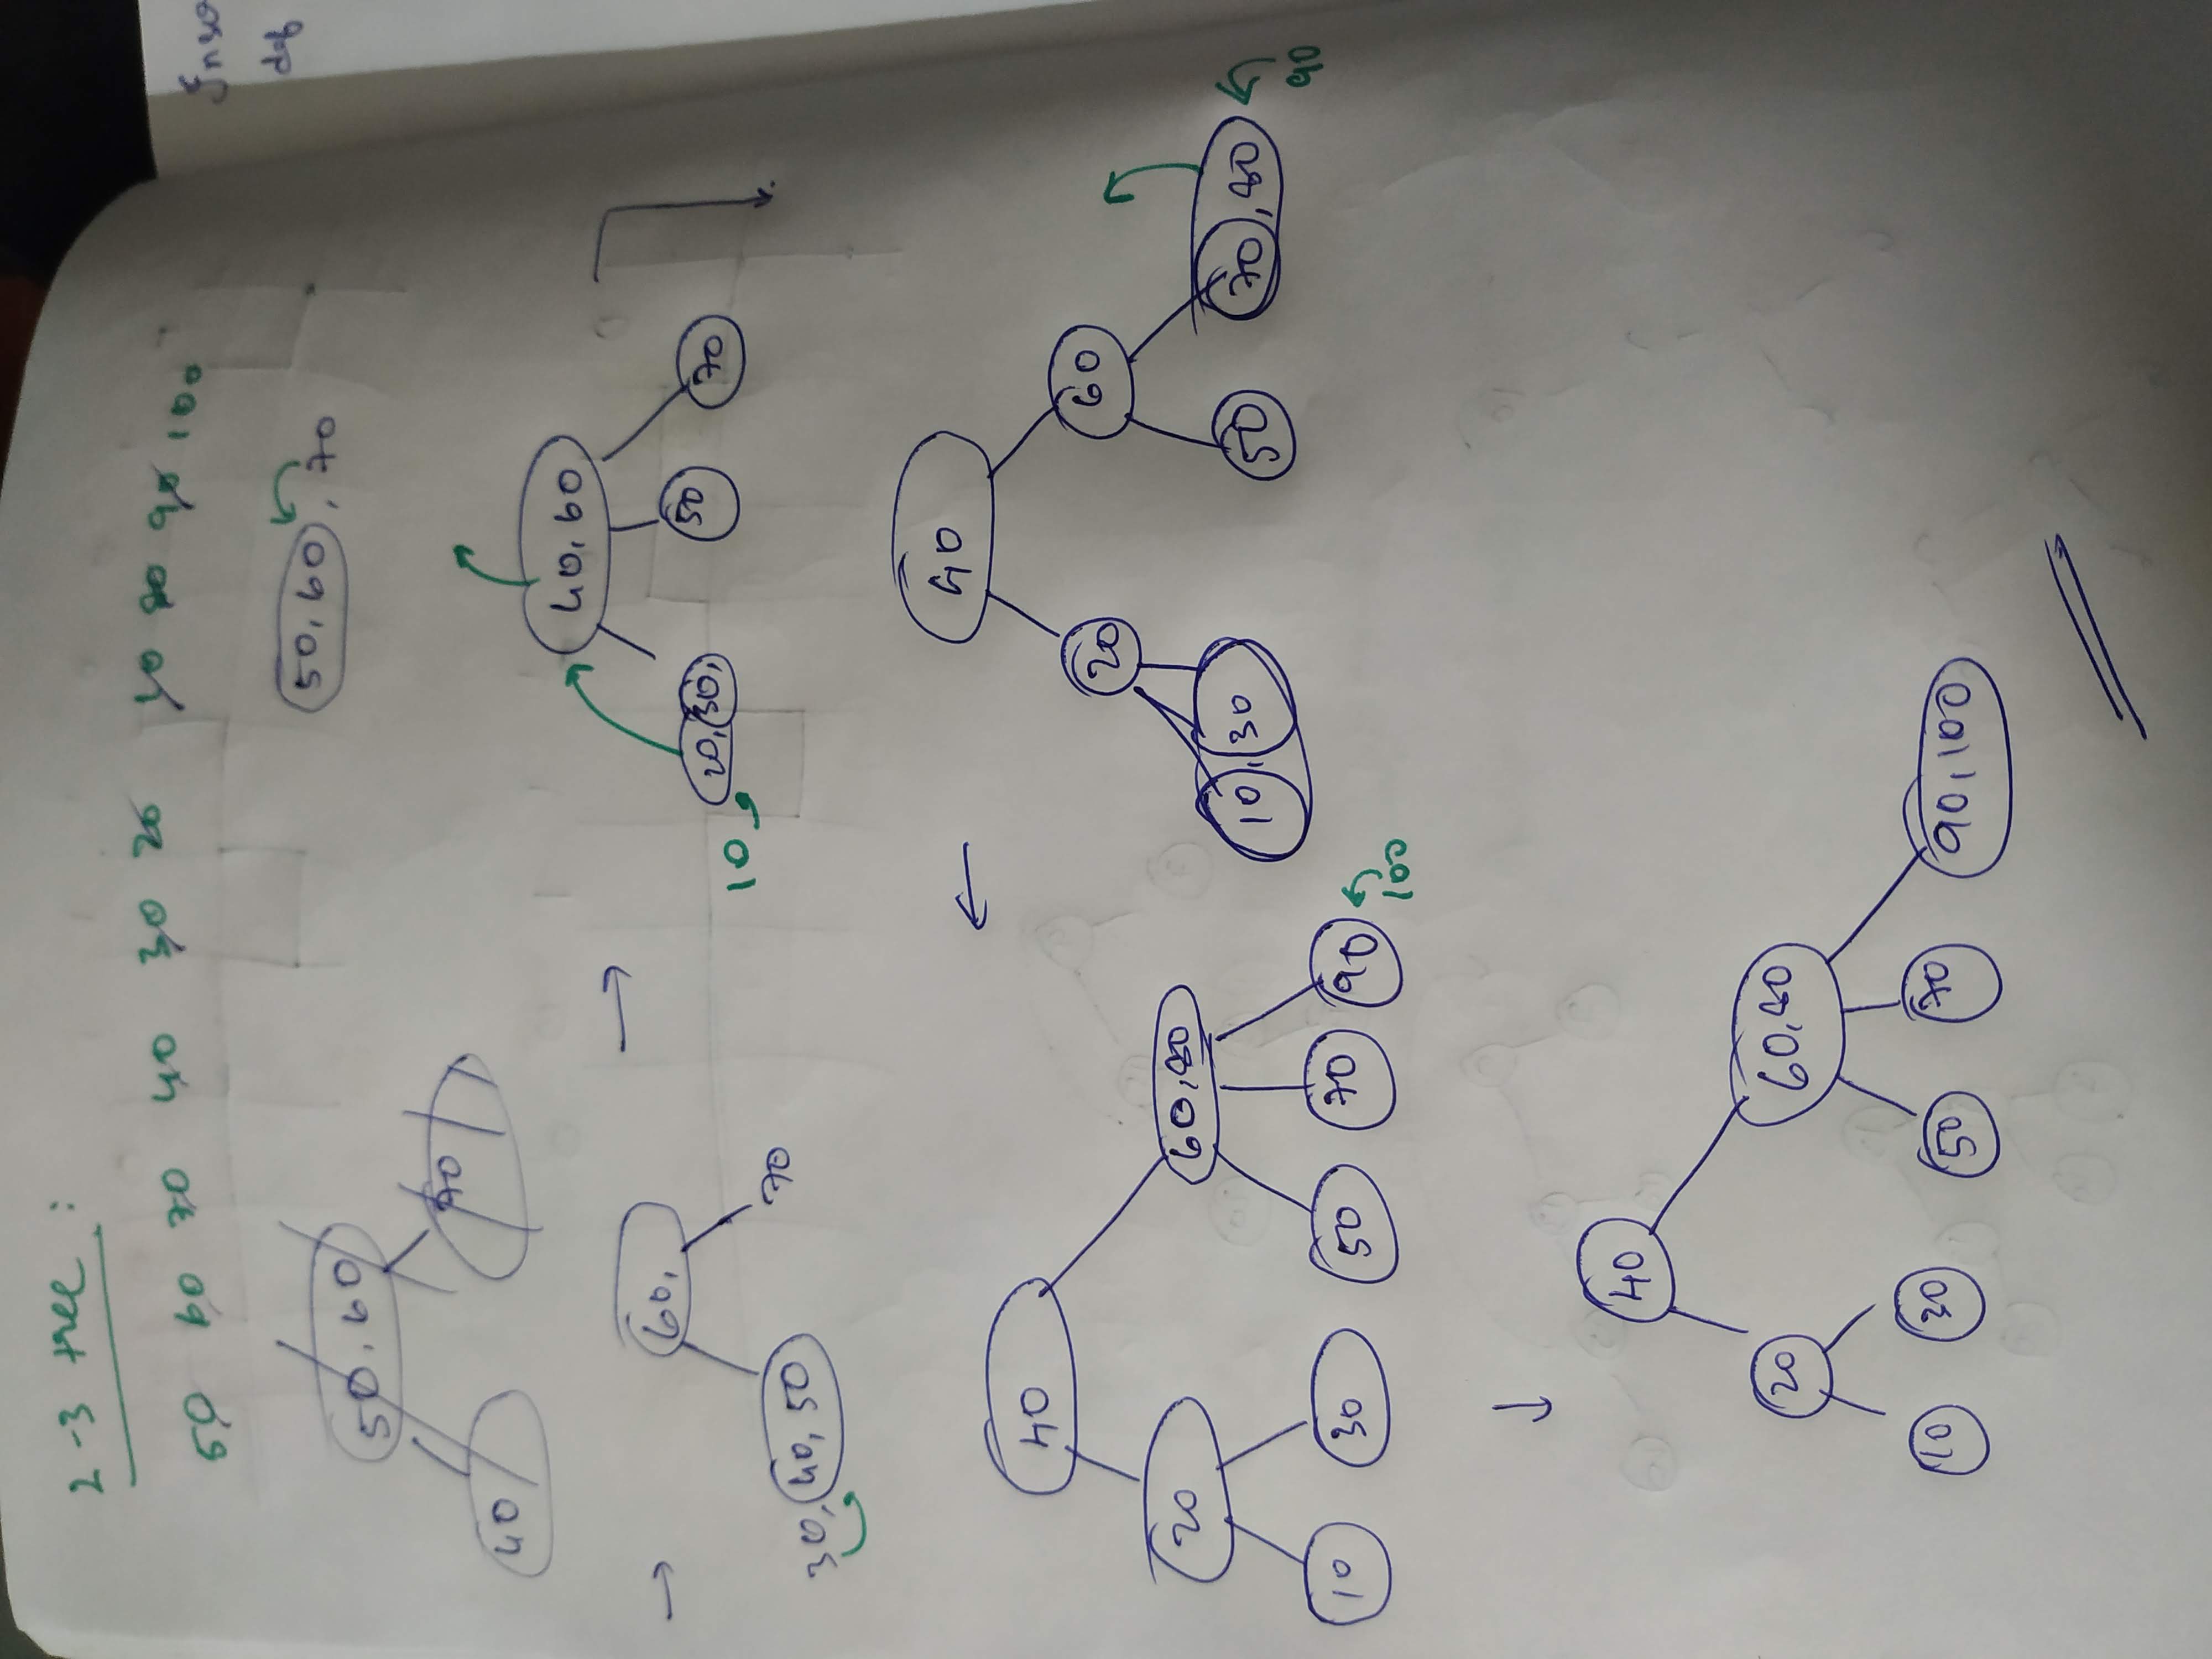 2-3 tree :
50 60 70 40 30 20 10 80 90 100
50, 60
40 70
50, 60, 70
60,
30, 40, 50 70
40, 60
10 20, 30, 50 70
40
20 60
10, 30 50 70, 80
90
40
20 60, 80
10 30 50 70 90
100
40
20 60, 80
10 30 50 70 90, 100